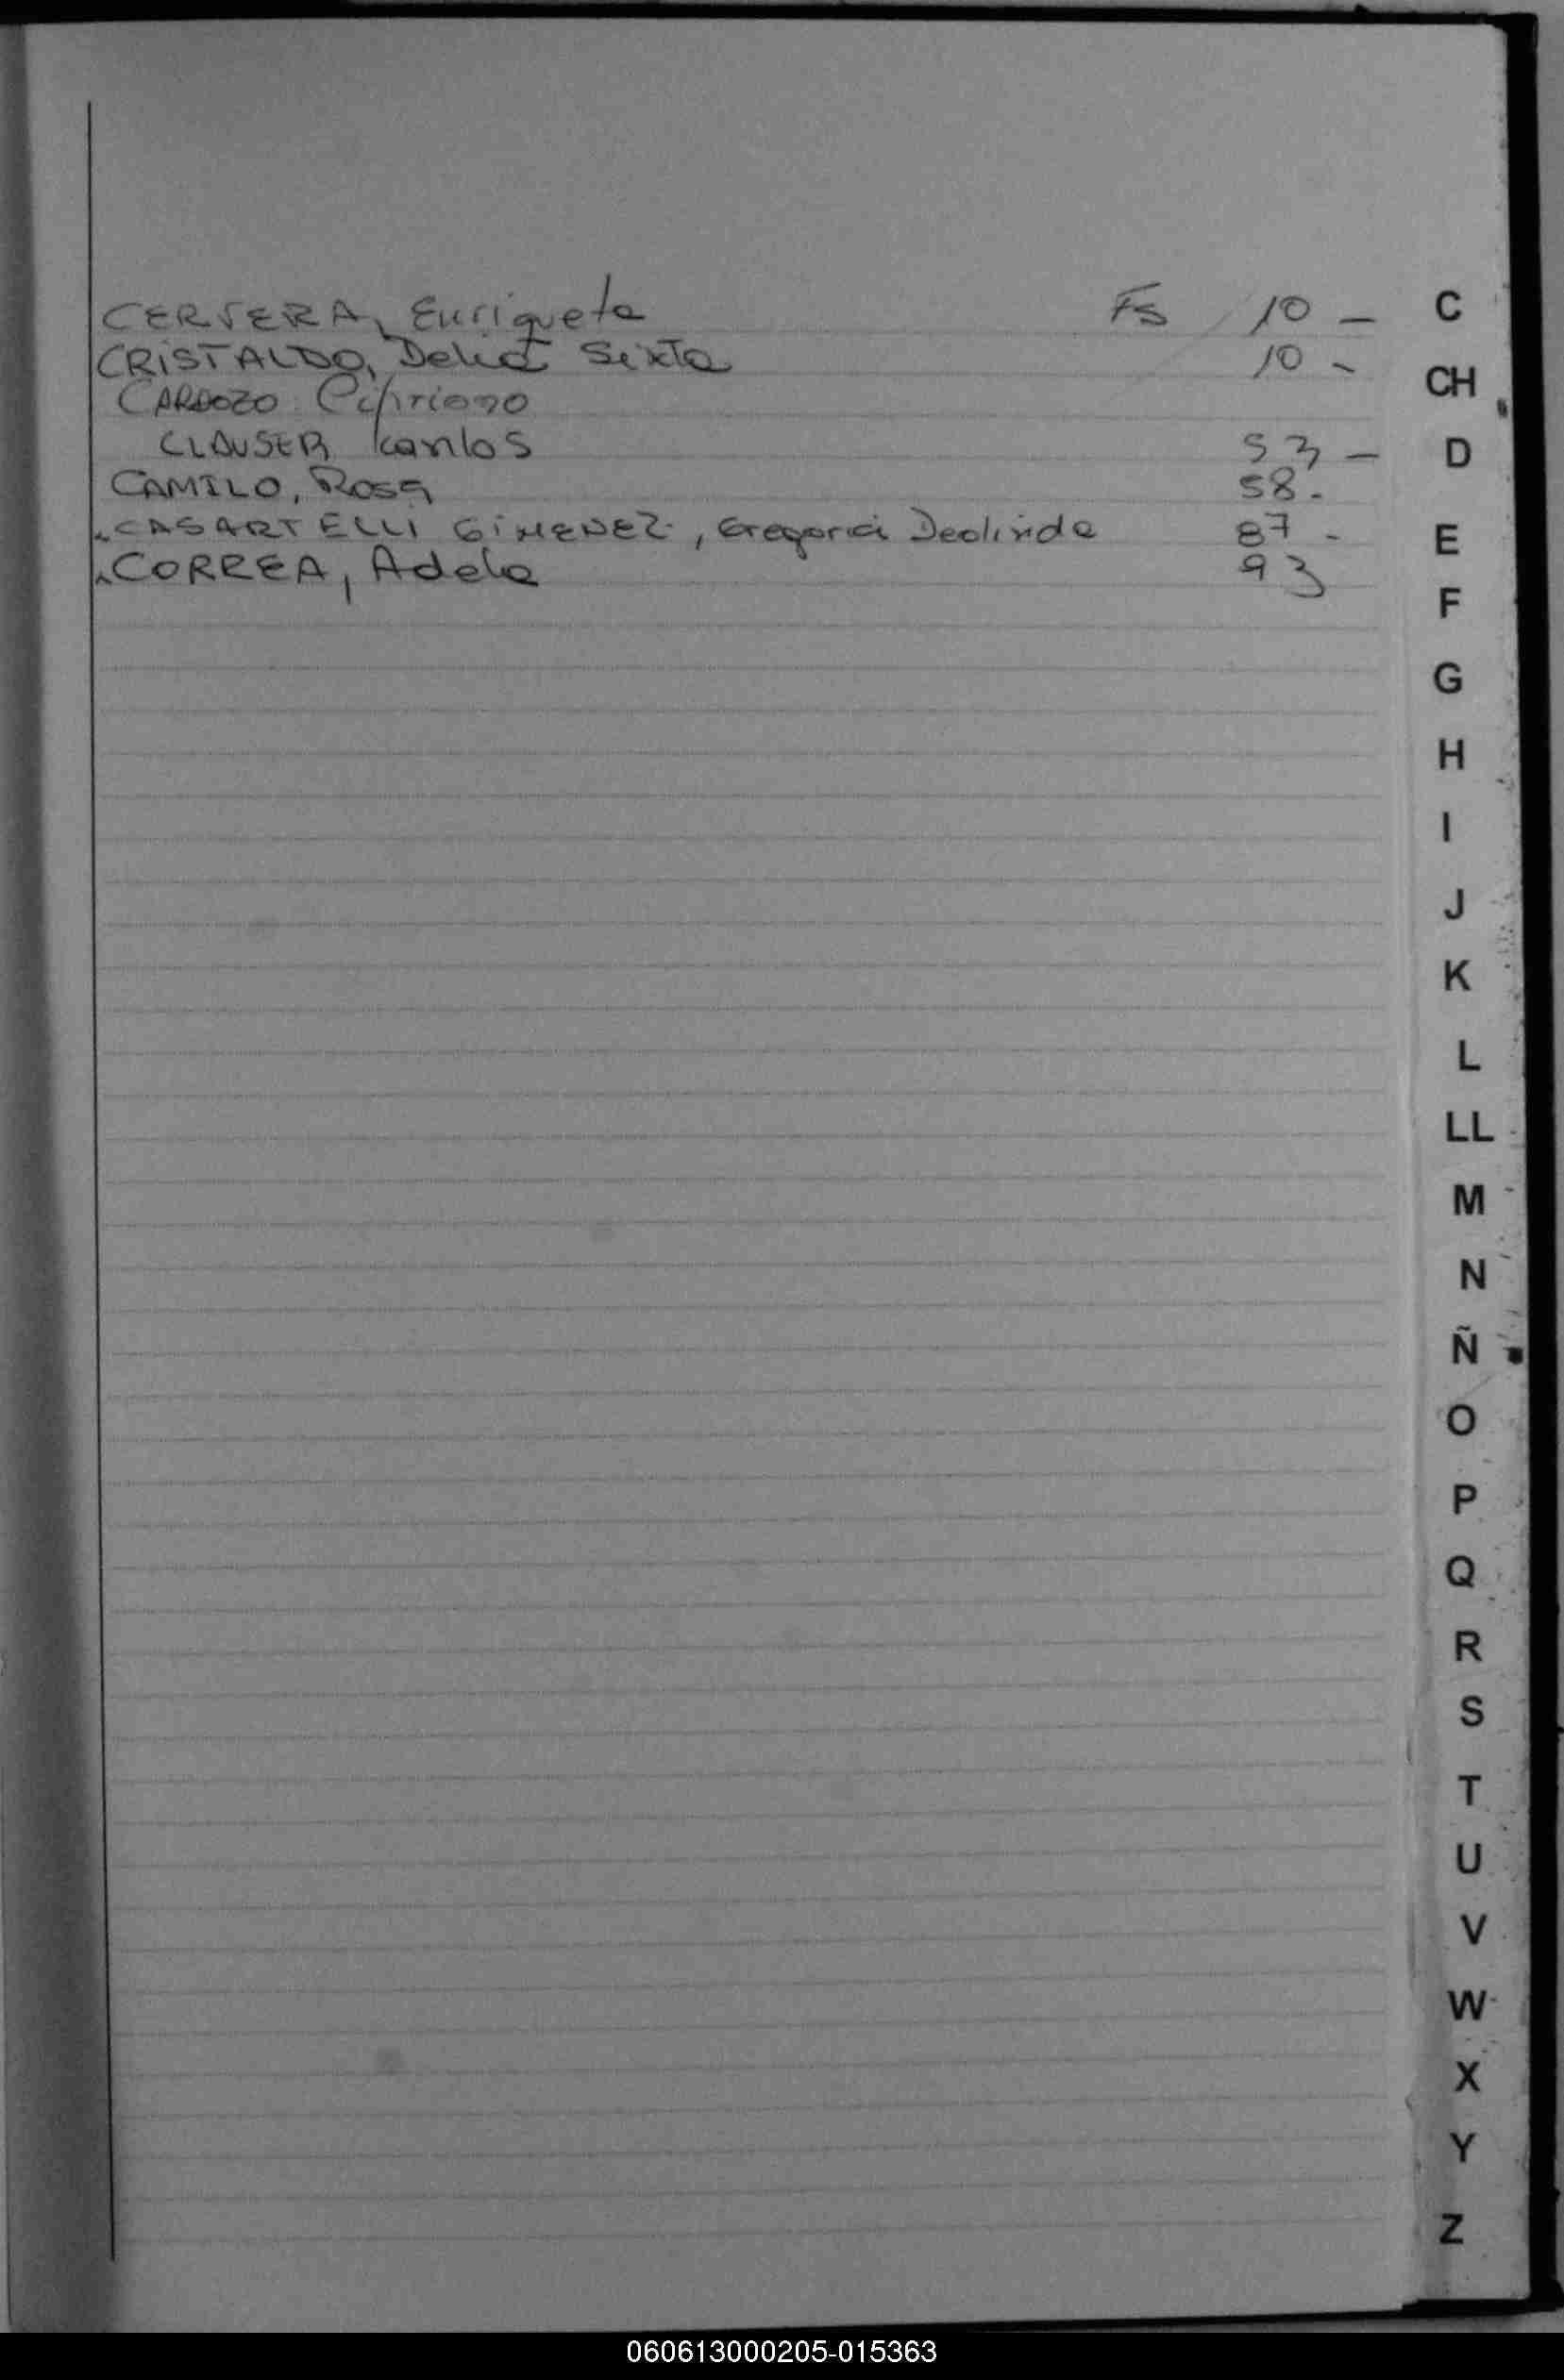 CERVERA, Enriqueta Fs 10 —
CRISTALDO, Delia Sixta 10 -
CARDOZO Cipriano
CLAUSER Karlos 53 —
CAMILO, Rosa 58.
CASARTELLI GIMENEZ, Gregoria Deolinda 87 -
CORREA, Adela 93
C
CH
D
E
F
G
H
I
J
K
L
LL
M
N
Ñ
O
P
Q
R
S
T
U
V
W
X
Y
Z
060613000205-015363